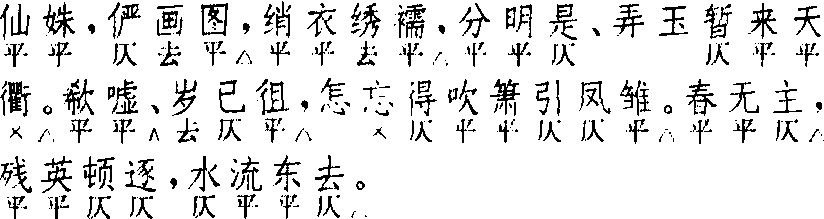 仙姝,俨画图,绡衣绣襦,分明是、弄玉暂来天
平平 仄去平△平平去平△平平仄 仄平平
衢。欷嘘、岁已徂,怎忘得吹箫引凤雏。春无主,
×△平平△去仄平△ ×仄平平仄仄平△平平仄△
残英顿逐,水流东去。
平平仄仄 仄平平仄△